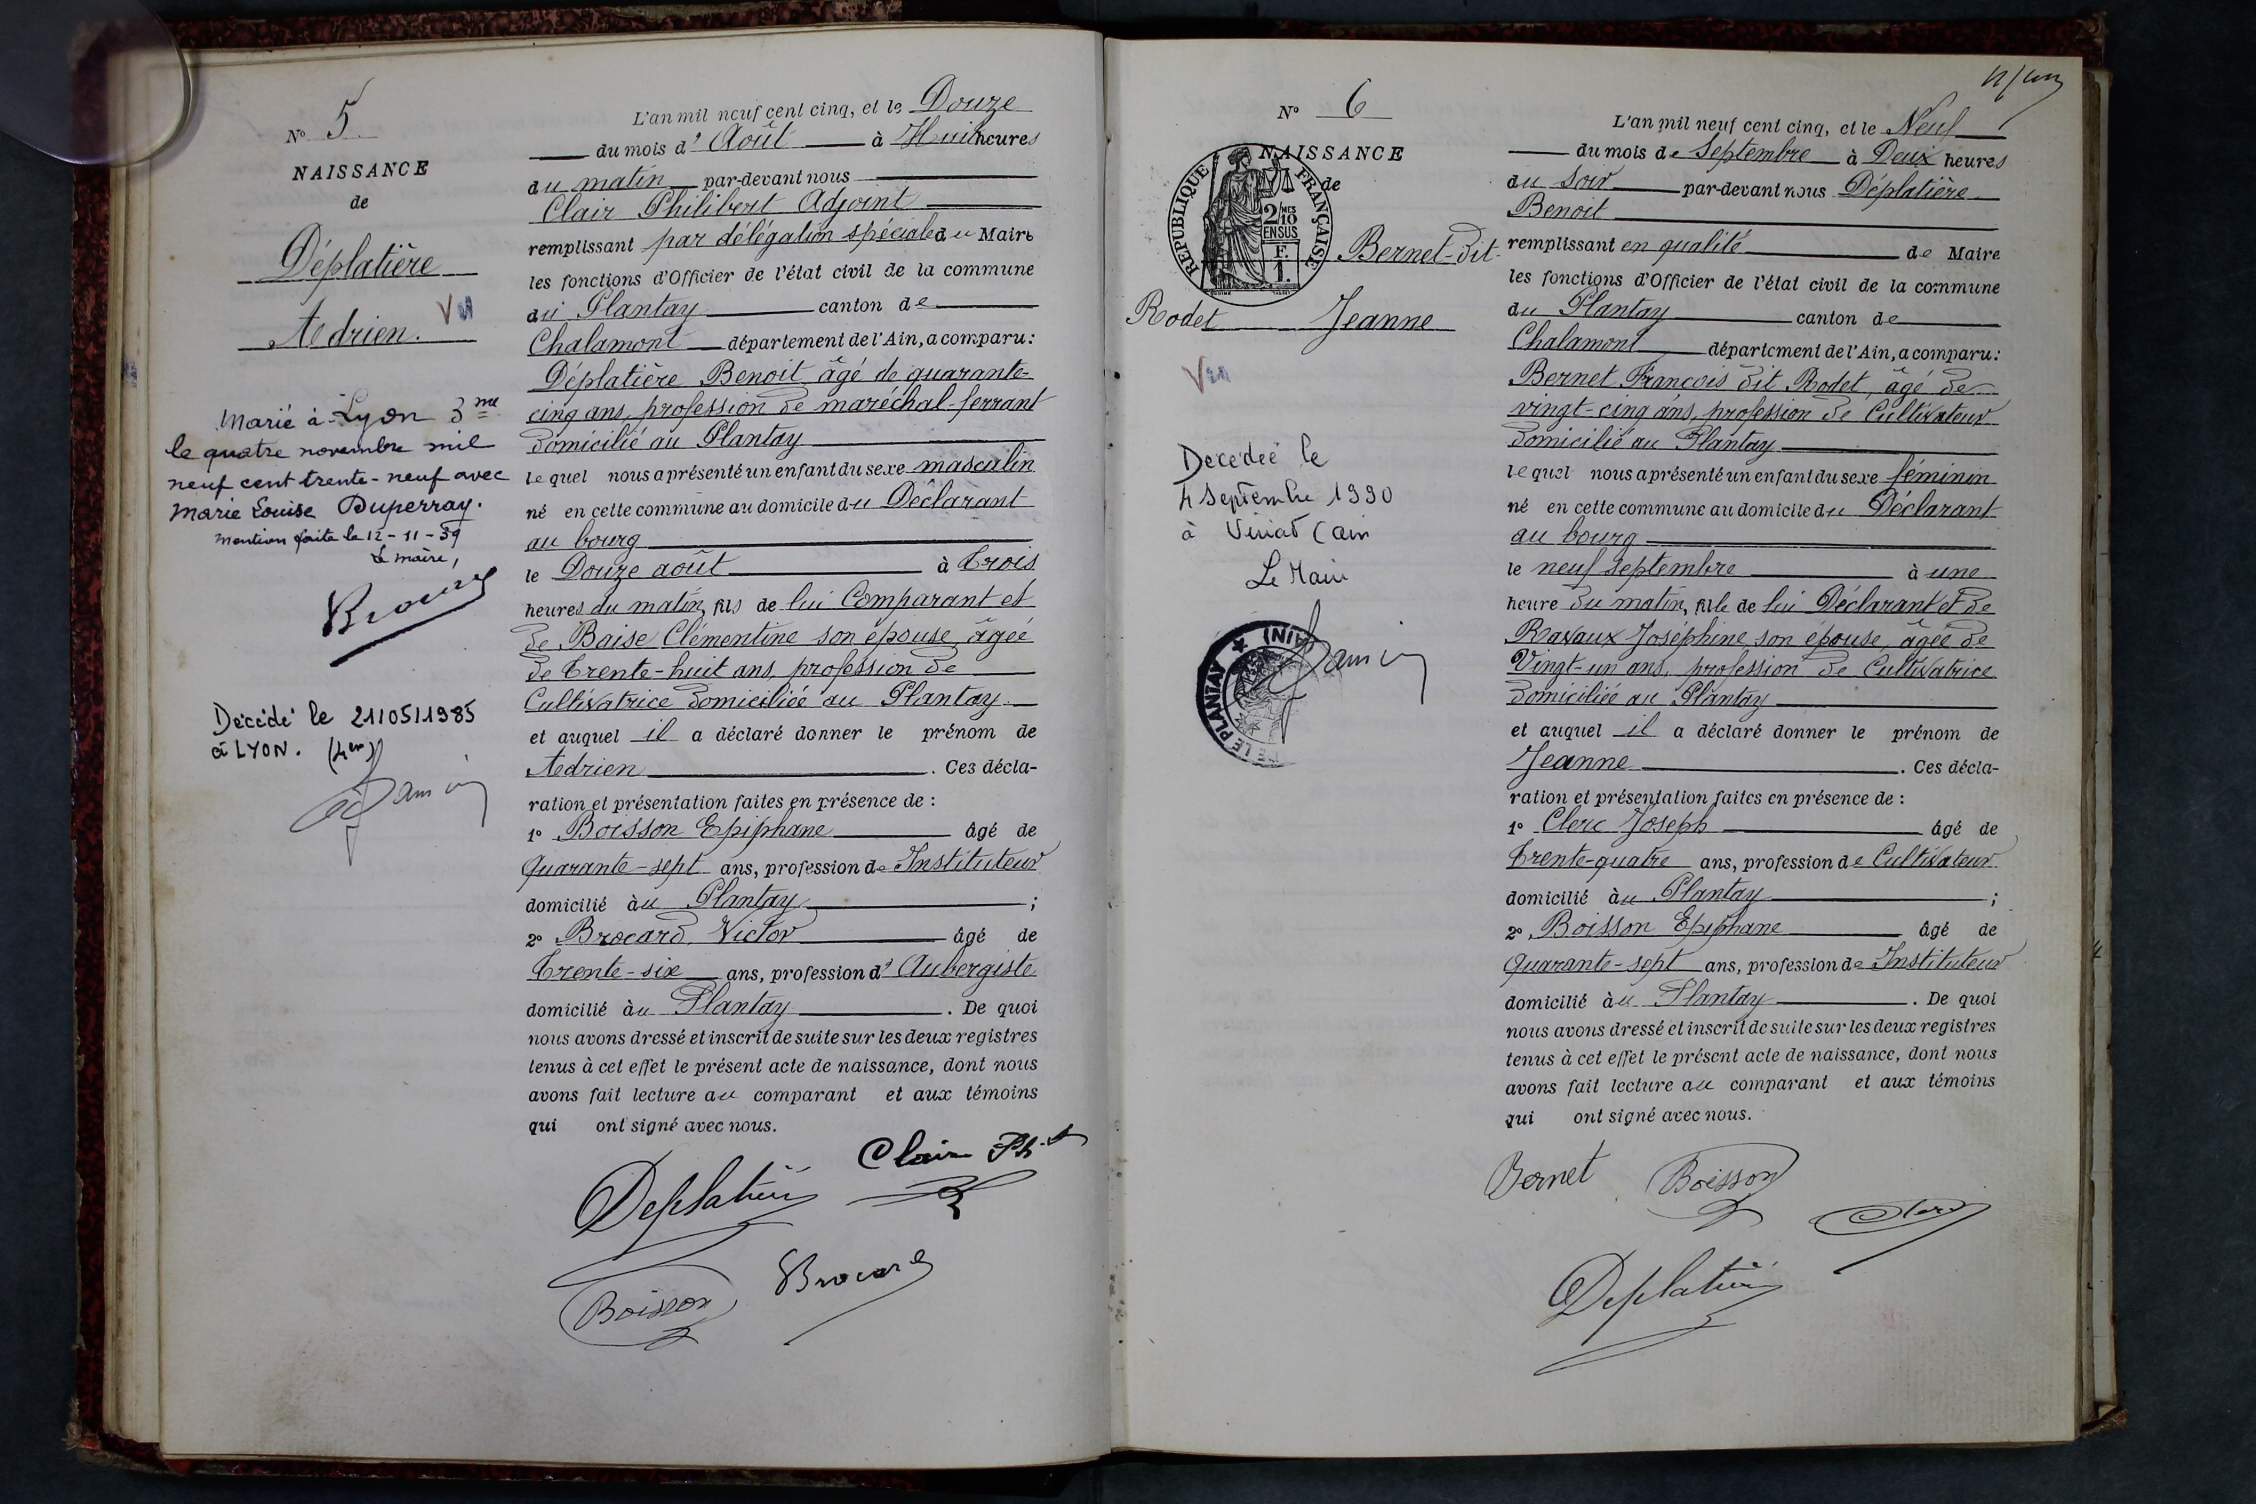 N° 5
NAISSANCE
de
Déplatière
Adrien.
Marié à Lyon 3me
le quatre novembre mil
neuf cent trente-neuf avec
Marie Louise Duperray.
Mention faite le 12-11-39
Le maire,
Décédé le 21/05/1985
à LYON. (4em)
L'an mil neuf cent cinq, et le Douze
du mois d' Août à Huit heures
du matin par-devant nous
Clair Philibert Adjoint
remplissant par délégation spéciale du Maire
les fonctions d'Officier de l'état civil de la commune
du Plantay canton de
Chalamont département de l'Ain, a comparu:
Déplatière Benoit âgé de quarante-
cinq ans, profession de maréchal-ferrant
domicilié au Plantay
lequel nous a présenté un enfant du sexe masculin
né en cette commune au domicile du Déclarant
au bourg
le Douze août à Trois
heures du matin, fils de lui Comparant et
de Baise Clémentine son épouse, âgée
de Trente-huit ans, profession de
Cultivatrice domiciliée au Plantay
et auquel il a déclaré donner le prénom de
Adrien. Ces décla-
ration et présentation faites en présence de :
1° Boisson Epiphane âgé de
Quarante-sept ans, profession de Instituteur
domicilié au Plantay ;
2° Brocard Victor âgé de
Trente-six ans, profession d' Aubergiste
domicilié au Plantay. De quoi
nous avons dressé et inscrit de suite sur les deux registres
tenus à cet effet le présent acte de naissance, dont nous
avons fait lecture au comparant et aux témoins
qui ont signé avec nous.
Clair Ph
Deplatière
Brocard
Boisson
N° 6
NAISSANCE
de
REPUBLIQUE FRANÇAISE
2/10 MES
EN SUS
1 F.
Bernet-dit-
Rodet Jeanne
Decedée le
4 Septembre 1990
à Viriat (ain
Le Maire
LE PLANTAY (AIN)
L'an mil neuf cent cinq, et le Neuf
du mois de Septembre à Deux heures
du Soir par-devant nous Déplatière
Benoit
remplissant en qualité de Maire
les fonctions d'Officier de l'état civil de la commune
du Plantay canton de
Chalamont département de l'Ain, a comparu:
Bernet François dit Rodet, âgé de
vingt-cinq ans, profession de Cultivateur
domicilié au Plantay
lequel nous a présenté un enfant du sexe féminin
né en cette commune au domicile du Déclarant
au bourg
le neuf Septembre à une
heure du matin, fille de lui Déclarant et de
Ravaux Joséphine son épouse, âgée de
Vingt-un ans, profession de Cultivatrice
domiciliée au Plantay
et auquel il a déclaré donner le prénom de
Jeanne. Ces décla-
ration et présentation faites en présence de :
1° Clerc Joseph âgé de
Trente-quatre ans, profession de Cultivateur
domicilié au Plantay ;
2° Boisson Epiphane âgé de
Quarante-sept ans, profession de Instituteur
domicilié au Plantay. De quoi
nous avons dressé et inscrit de suite sur les deux registres
tenus à cet effet le présent acte de naissance, dont nous
avons fait lecture au comparant et aux témoins
qui ont signé avec nous.
Bernet Boisson
Clerc
Deplatière